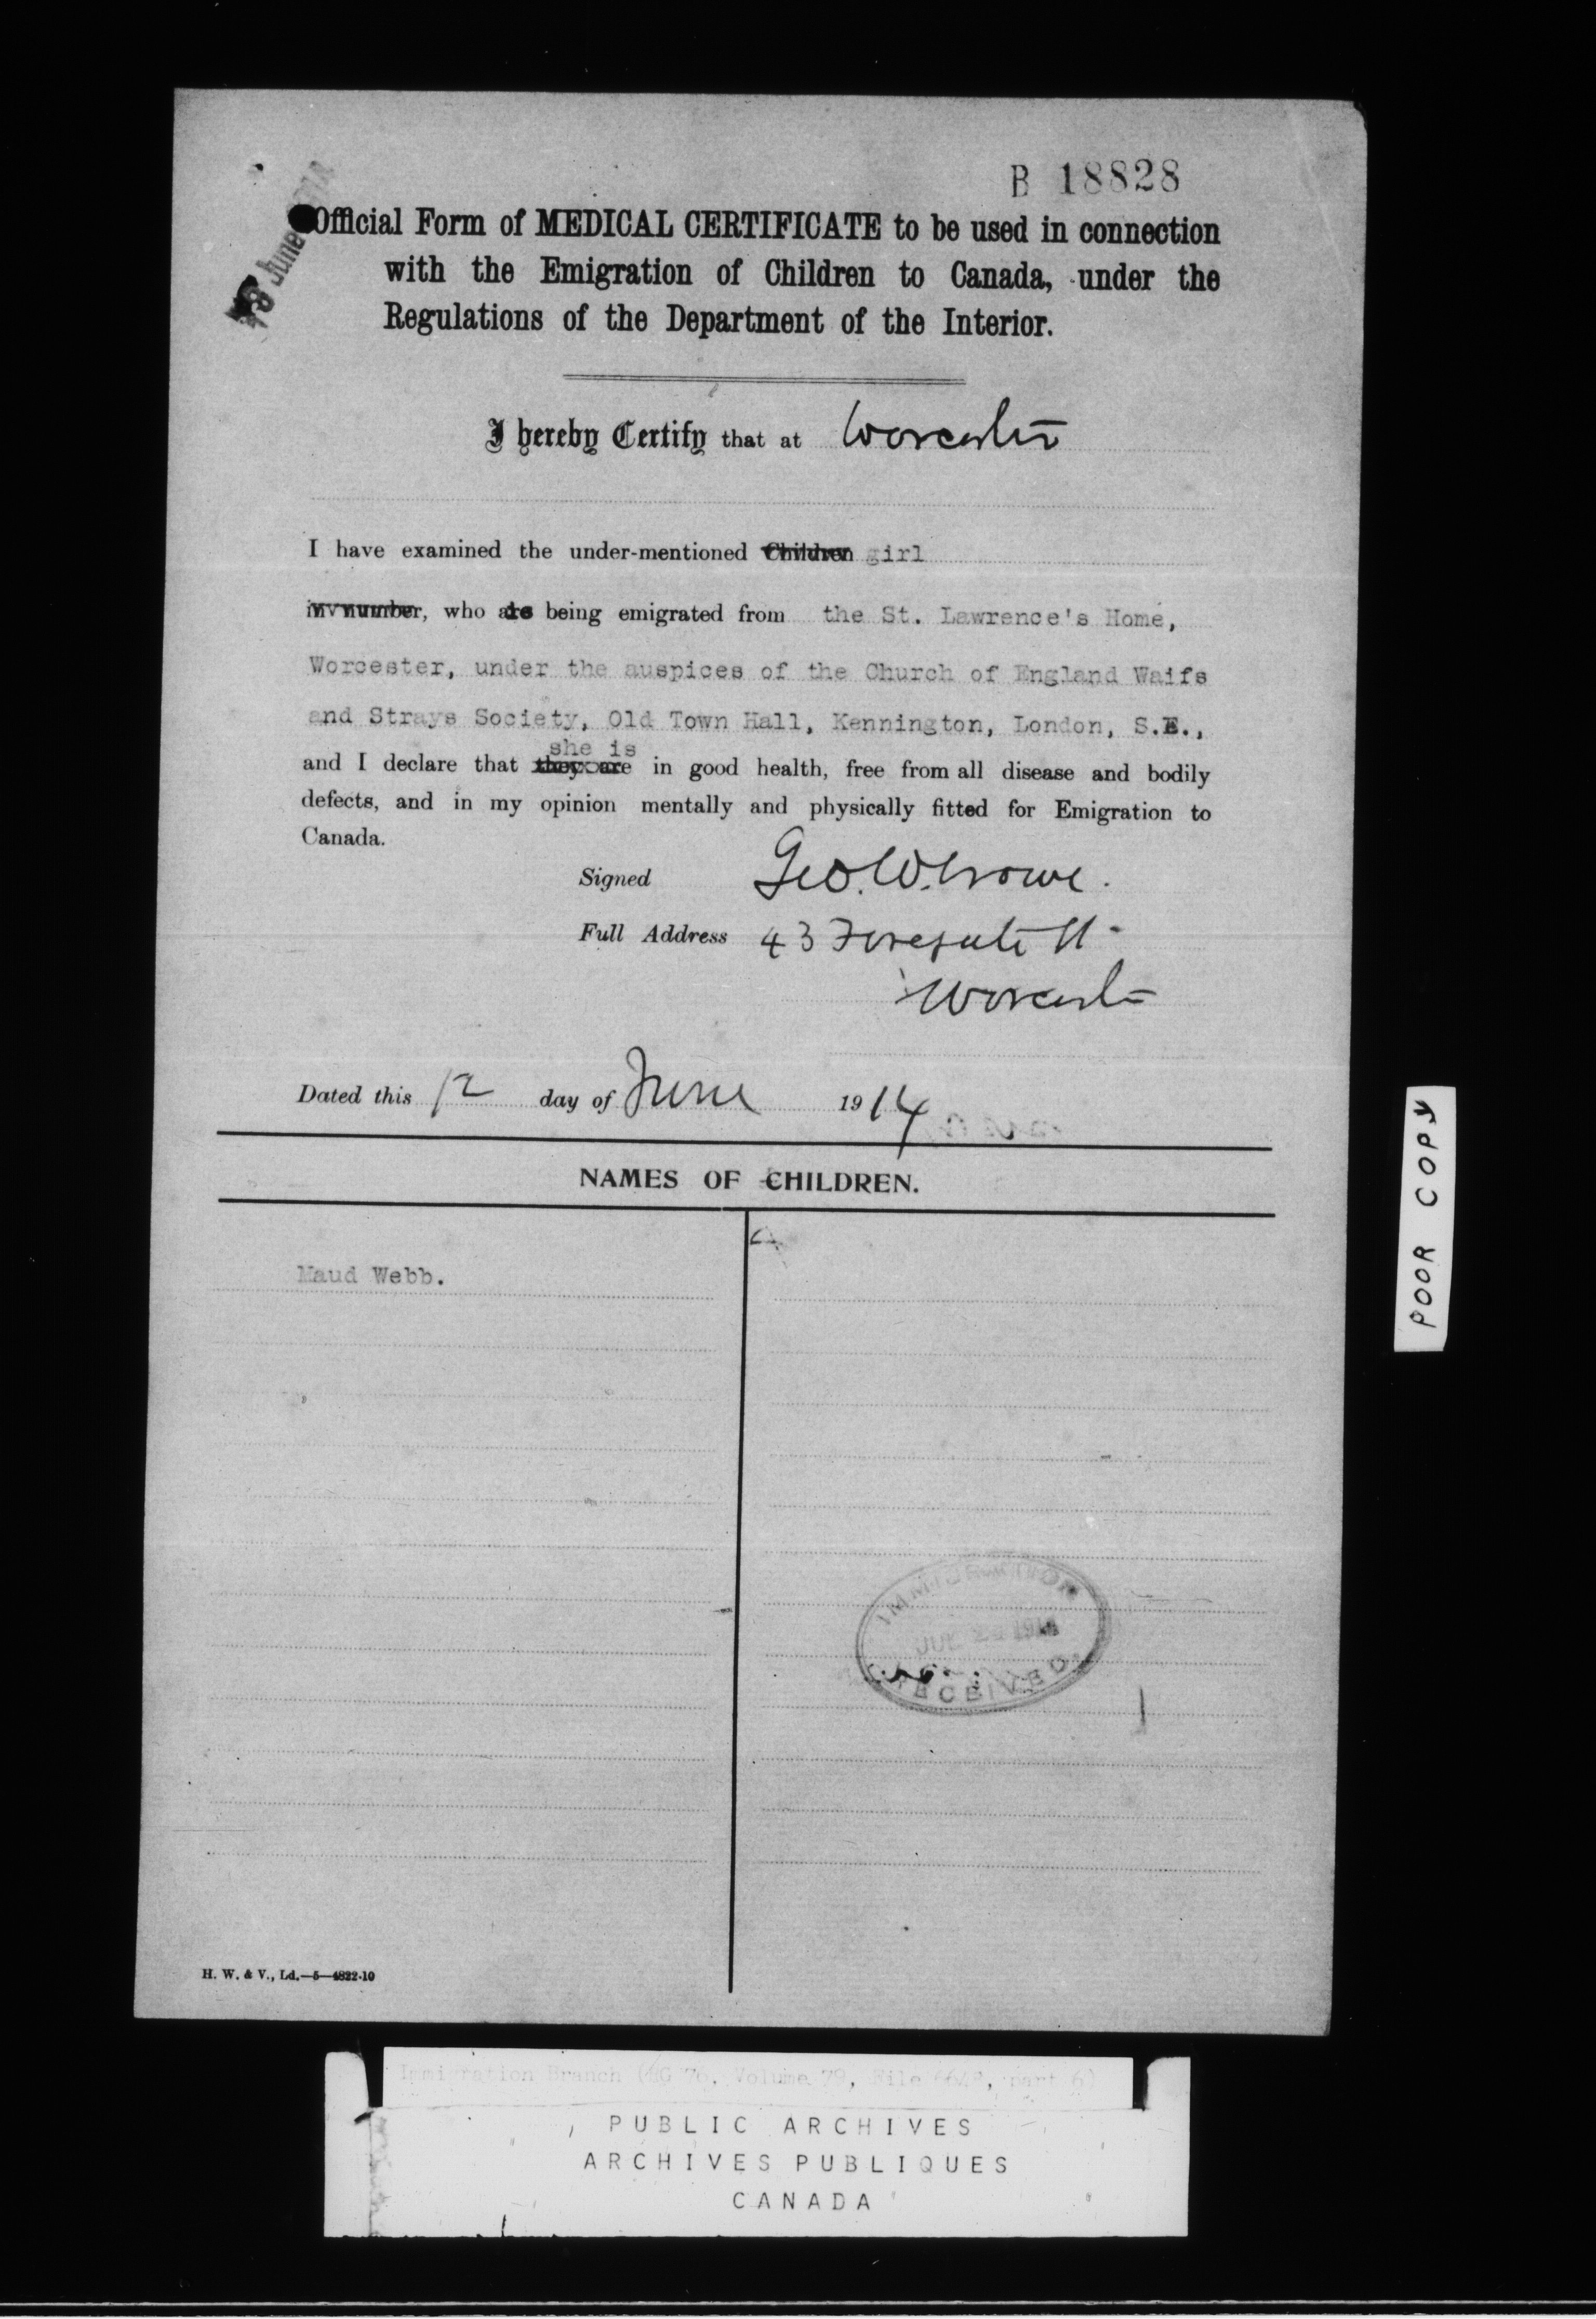 B 18828
18 June
Official Form of MEDICAL CERTIFICATE to be used in connection
with the Emigration of Children to Canada, under the
Regulations of the Department of the Interior.
I hereby Certify that at Worcester
I have examined the under-mentioned Children girl
in number, who are is being emigrated from the St. Lawrence's Home,
Worcester, under the auspices of the Church of England Waifs
and Strays Society, Old Town Hall, Kennington, London, S.E.,
she is
and I declare that they are in good health, free from all disease and bodily
defects, and in my opinion mentally and physically fitted for Emigration to
Canada.
Signed Geo. W. Crowe.
Full Address 43 Foregate St.
Worcester
Dated this 12 day of June 1914
NAMES OF CHILDREN.
Maud Webb.
IMMIGRATION
JUL 1914
RECEIVED
H. W. & V., Ld.—5—4822-10
POOR COPY
Immigration Branch (RG 76, Volume 79, File, part 6)
PUBLIC ARCHIVES
ARCHIVES PUBLIQUES
CANADA